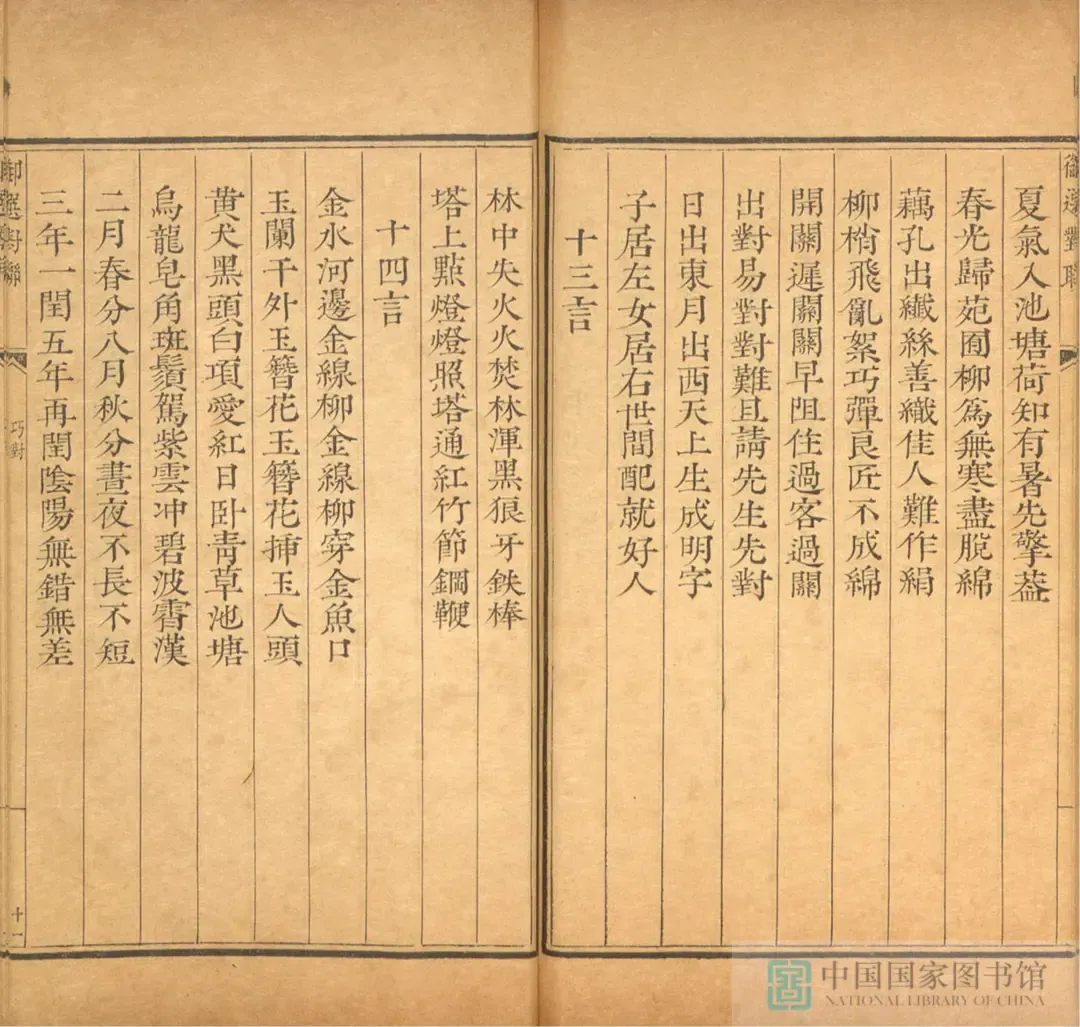 御選對聯
夏氣入池塘荷知有暑先擎葢
春光歸苑囿柳爲無寒盡脫綿
藕孔出纖絲善織佳人難作絹
柳梢飛亂絮巧彈良匠不成綿
開關遲關關早阻住過客過關
出對易對對難且請先生先對
日出東月出西天上生成明字
子居左女居右世間配就好人
十三言
林中失火火焚林渾黑狼牙鉄棒
塔上點燈燈照塔通紅竹節鋼鞭
十四言
金水河邊金線柳金線柳穿金魚口
玉闌干外玉簪花玉簪花揷玉人頭
黄犬黑頭白項愛紅日卧靑草池塘
烏龍皂角斑鬚駕紫雲冲碧波霄漢
二月春分八月秋分晝夜不長不短
三年一閏五年再閏陰陽無錯無差
御選對聯
巧對
十一
中国国家图书馆
NATIONAL LIBRARY OF CHINA